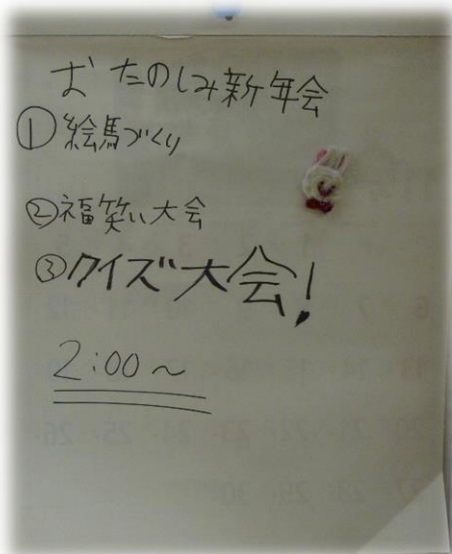 おたのしみ新年会
①絵馬づくり
②福笑い大会
③クイズ大会!
2:00～